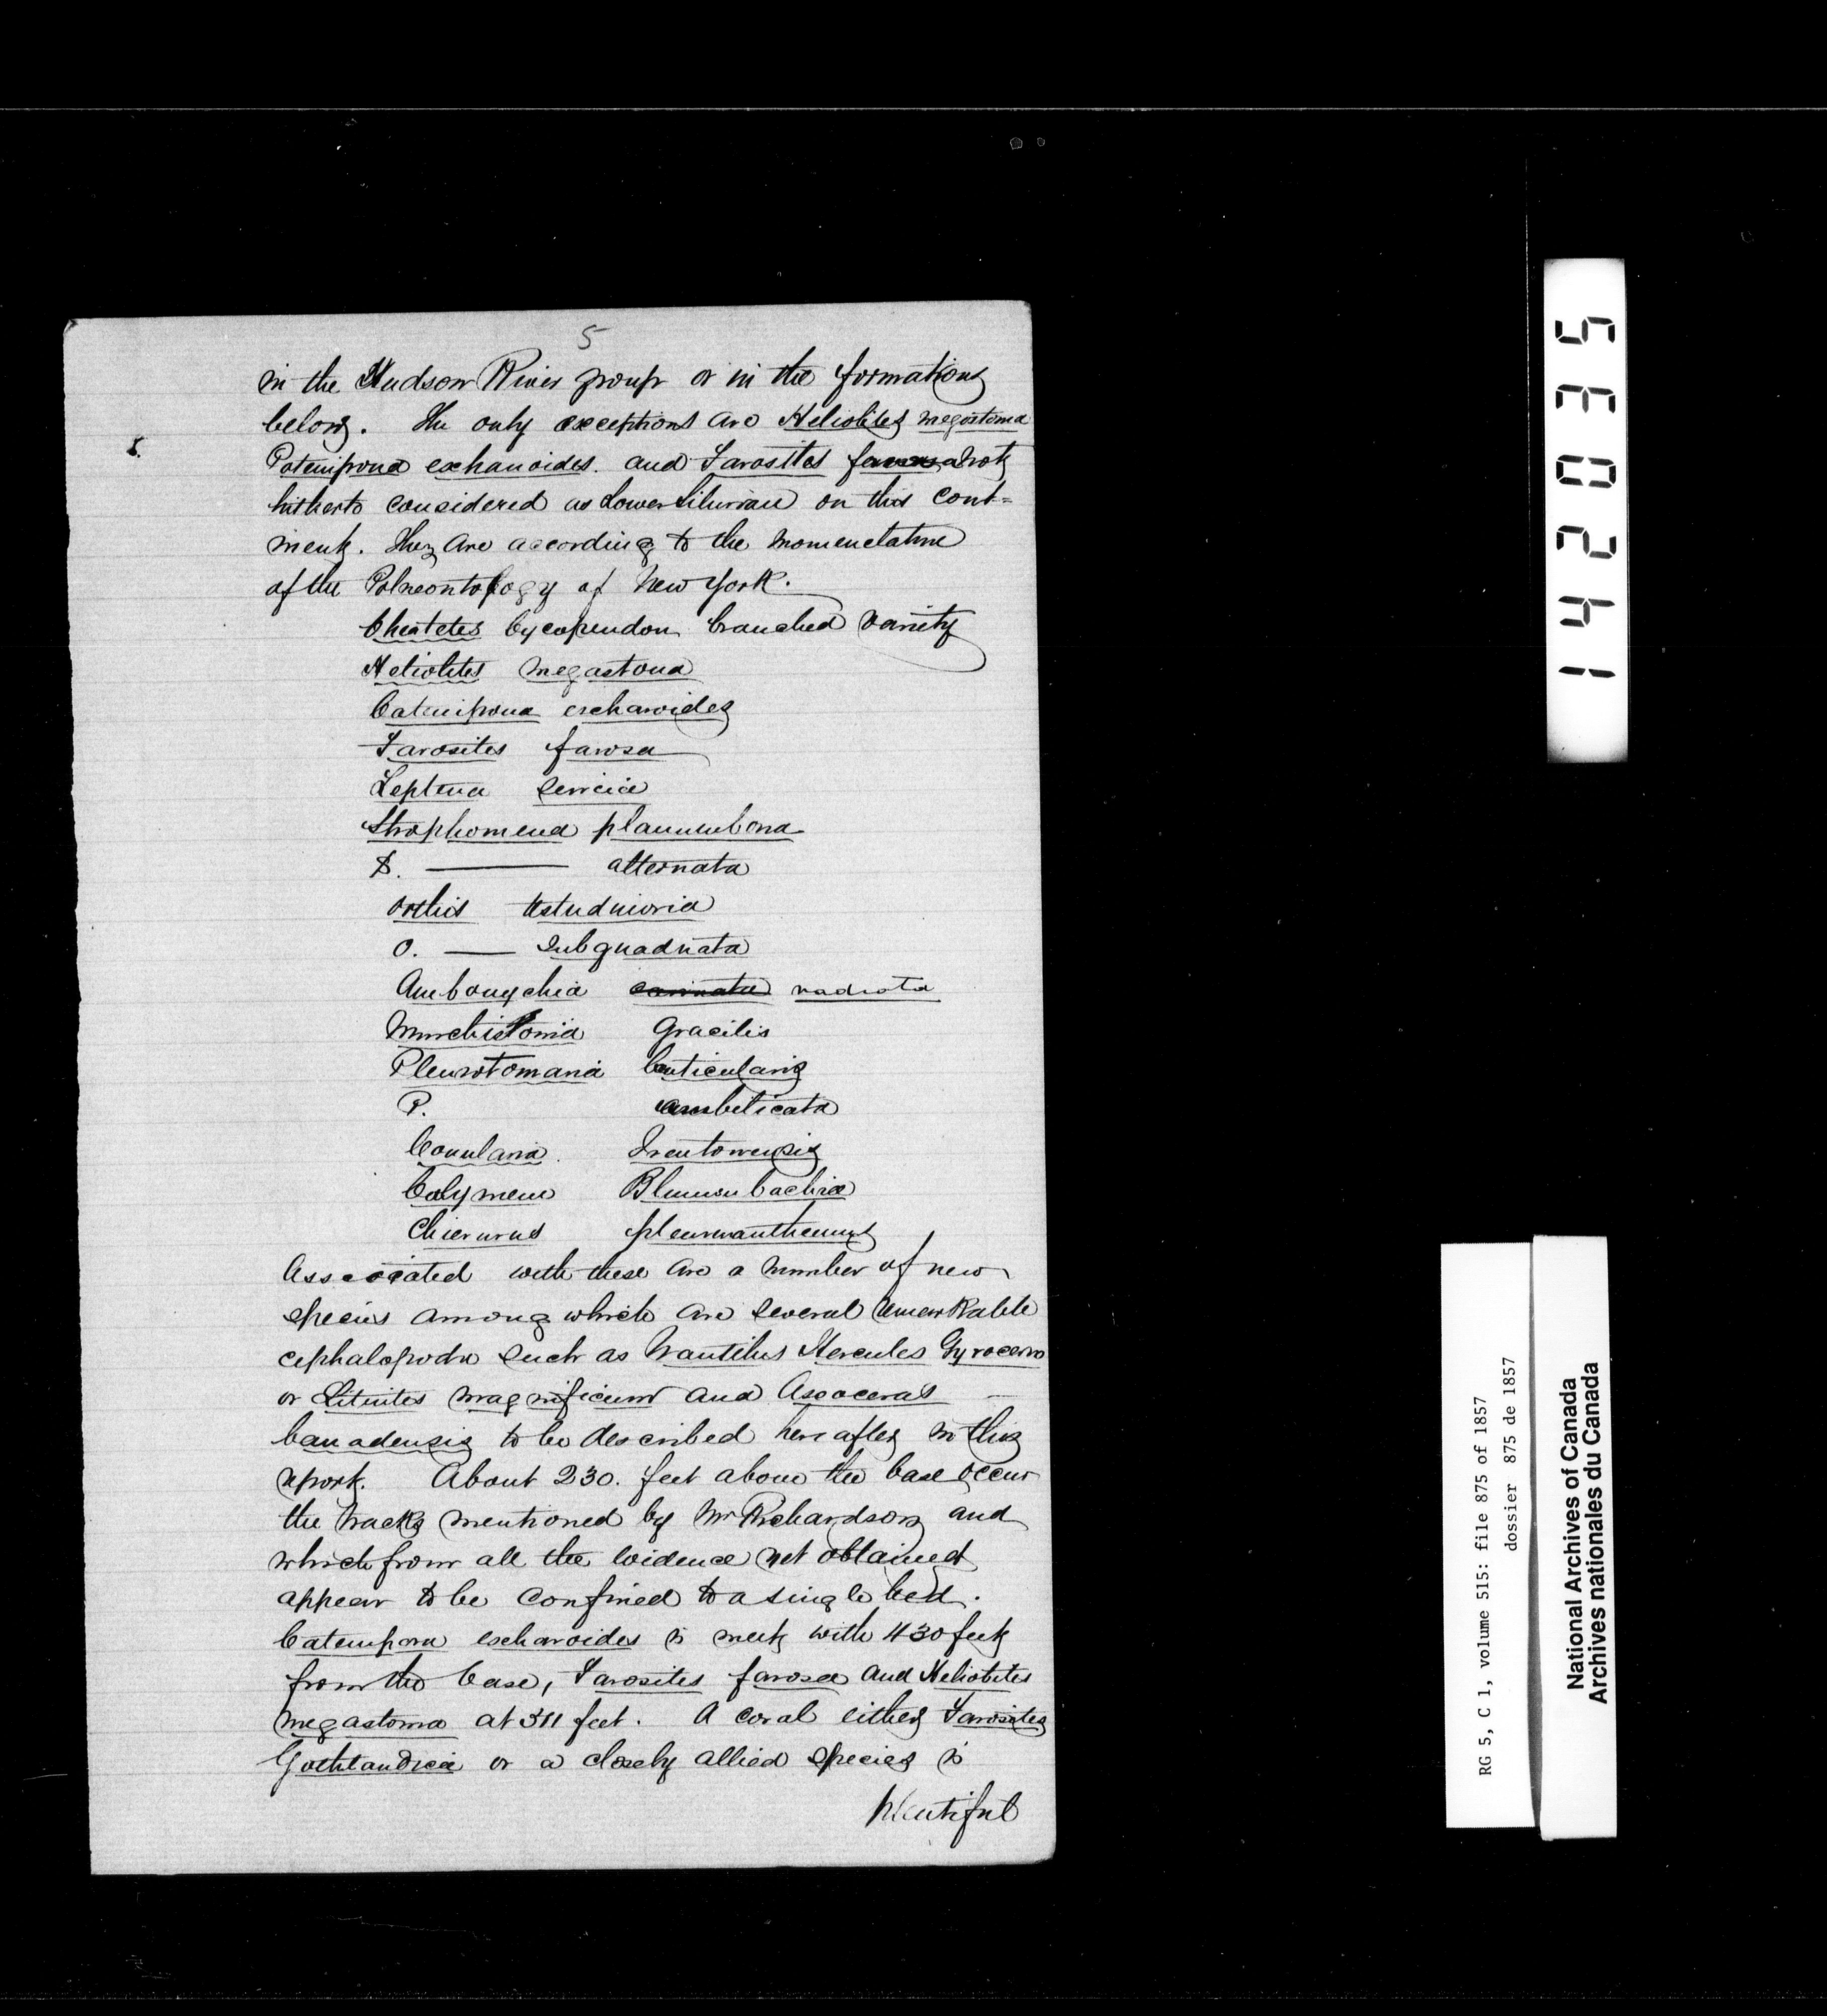 5
in the Hudson River group or in the formations
below. The only exceptions are Heliolites megastoma
Catenipora escharoides. and Favosites favosa not
hitherto considered as Lower Silurian on this cont=
inent. They are according to the nomenclature
of the Palaeontology of New York.
Cheatetes lycopendon branched variety
Heliolites megastoma
Catenipora escharoides
Favosites favosa
Leptena sericia
Strophomena planumbona
S. ——— alternata
Orthis testudinoria
O. —— subquadrata
Ambonychia carinata radiata
Murchisonia Gracilis
Pleurotomaria lenticularis
P. umbilicata
Conularia. Trentonensis
Calymene Blumenbachia
Chierurus pleurexanthemus
Associated with these are a number of new
species among which are several remarkable
cephalopoda such as Nautilus Hercules Gyroceras
or Lituites magnificum and Ascoceras —
Canadensis to be described hereafter in this
report. About 230. feet above the base occur
the tracks mentioned by Mr Richardson and
which from all the evidence yet obtained
appear to be confined to a single bed.
Catenipora escharoides is meet with 430 feet
from the base, Favosites favosa and Heliolites
megastoma at 511 feet. A coral either Favosites
Gothlandica or a closely allied species is
plentiful
142035
RG 5, C 1, volume 515: file 875 of 1857
dossier 875 de 1857
National Archives of Canada
Archives nationales du Canada